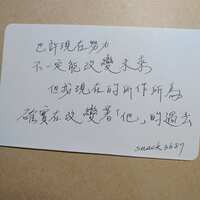 也許現在努力
不一定能改變未來
但我現在的所作所為
確實在改變著「他」的過去